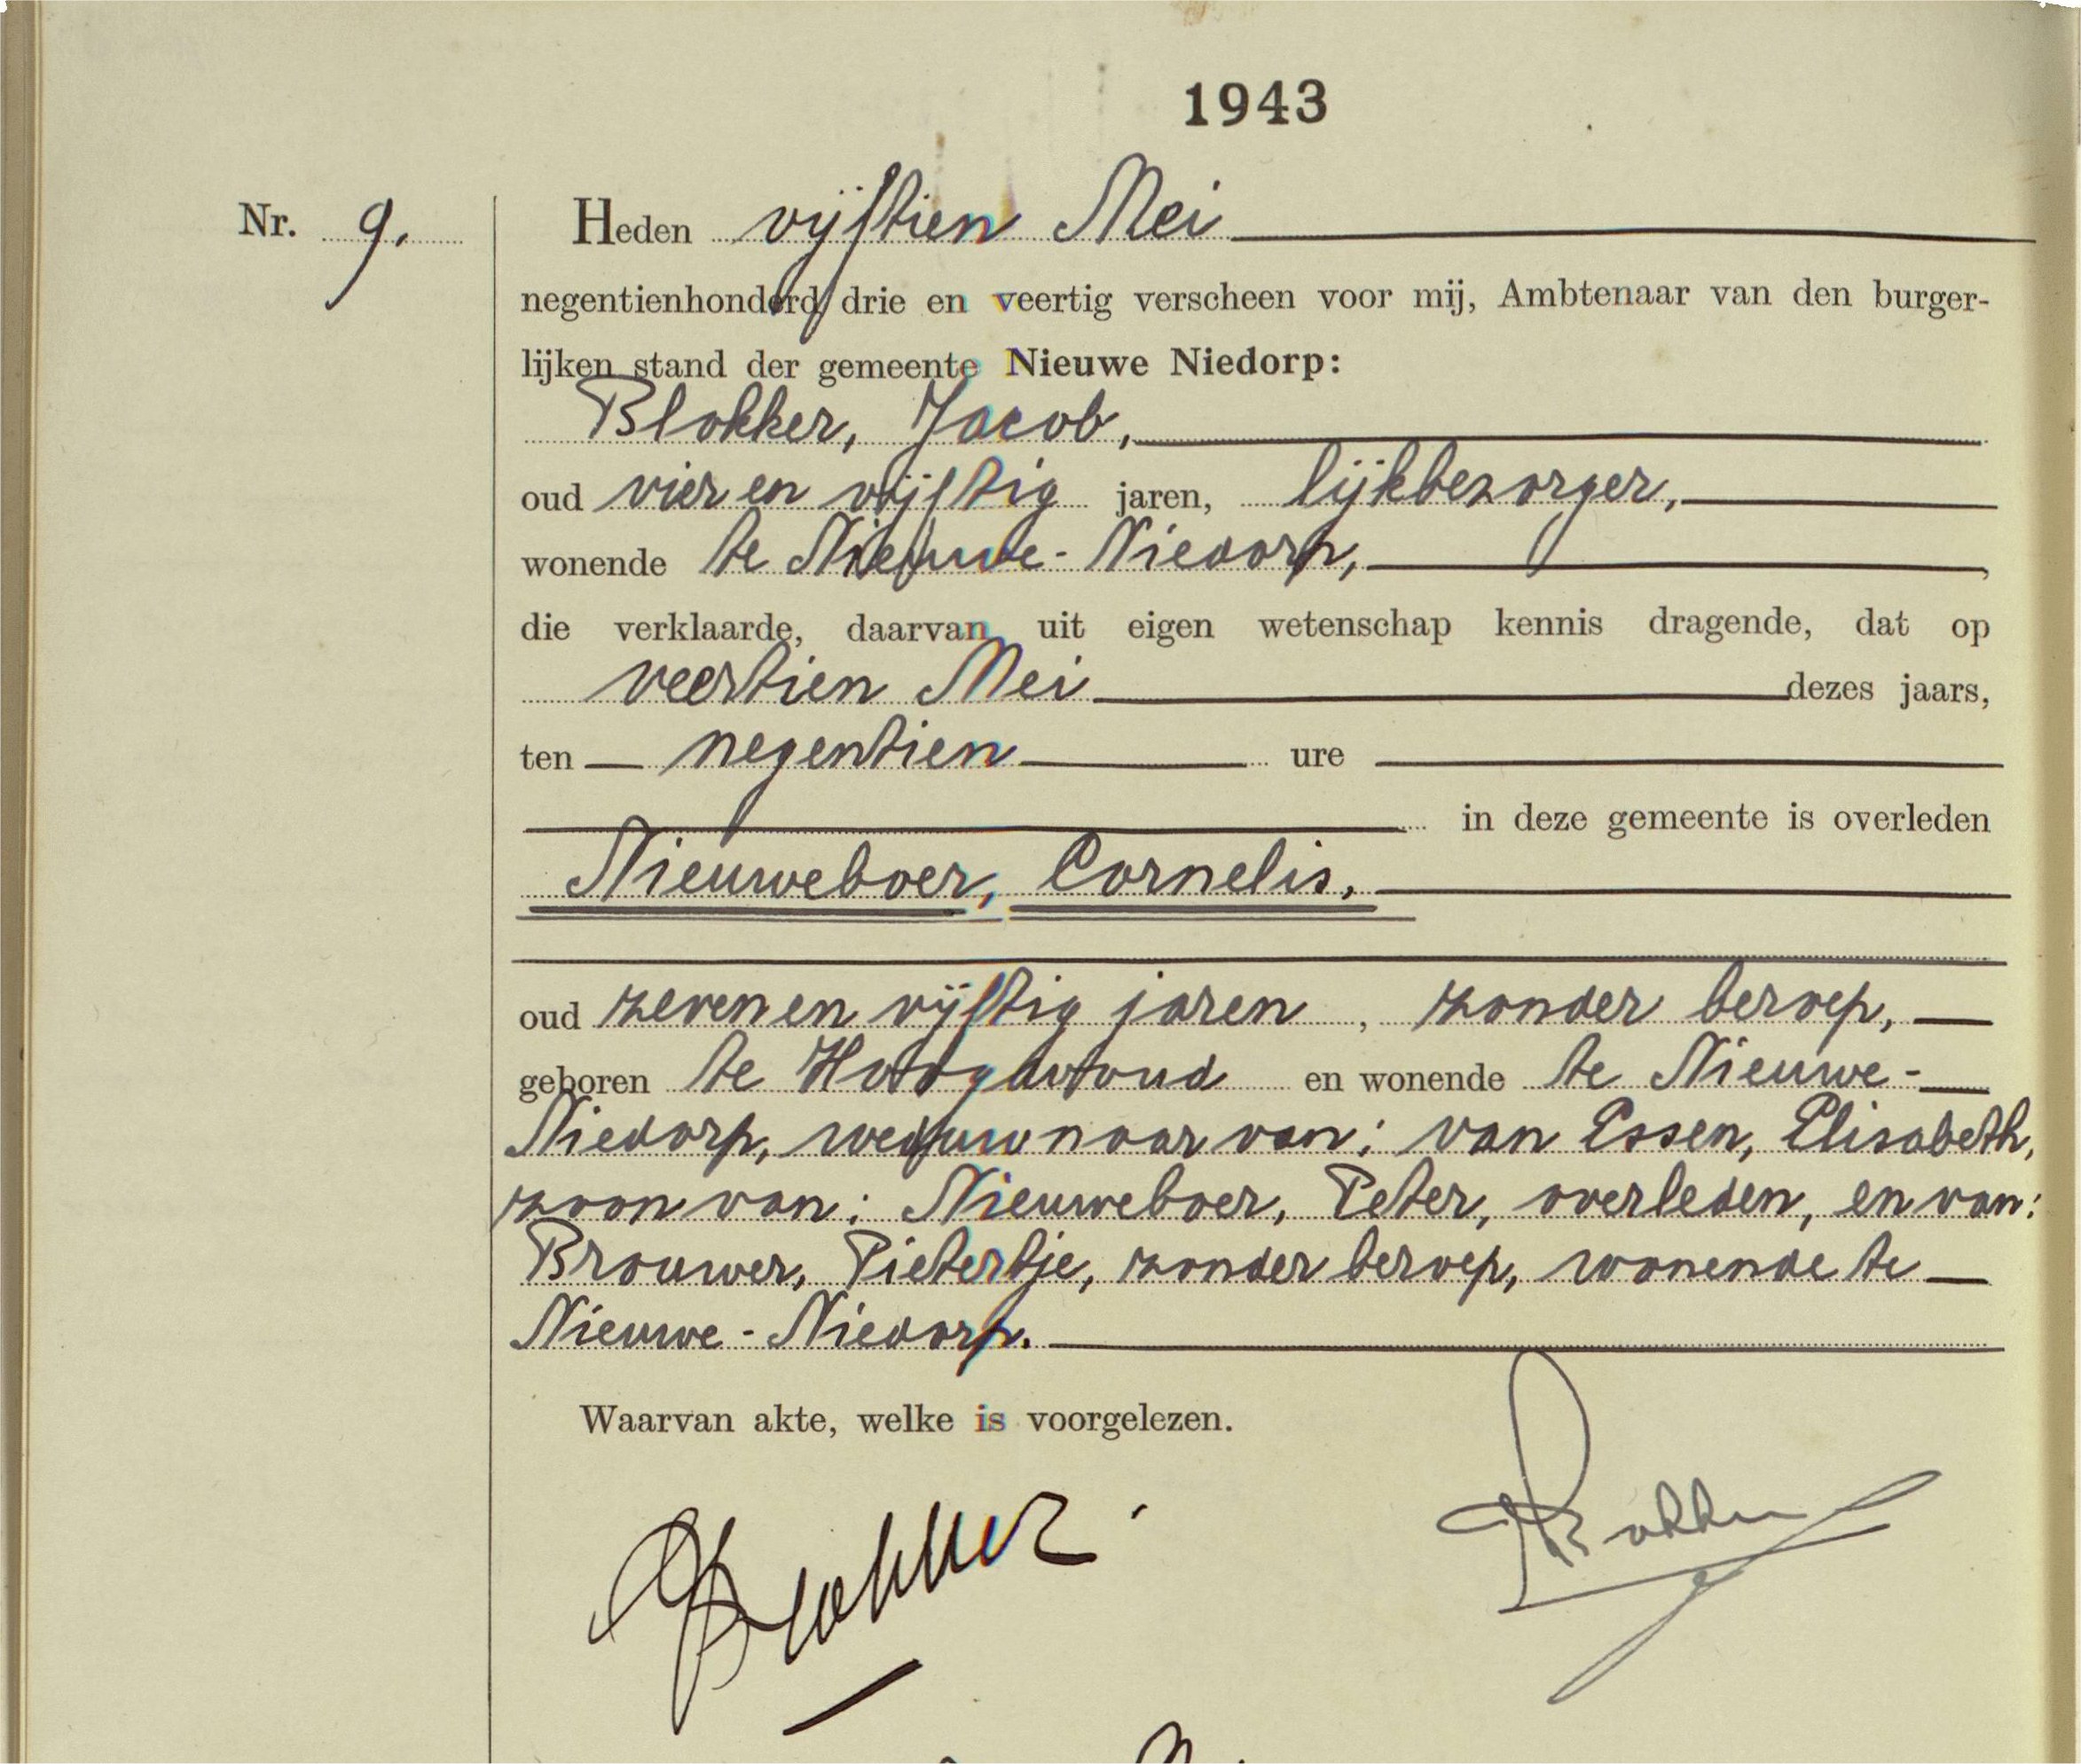 1943
Nr. 9. Heden vijftien Mei
negentienhonderd drie en veertig verscheen voor mij, Ambtenaar van den burger-
lijken stand der gemeente Nieuwe Niedorp:
Blokker, Jacob,
oud vier en vijftig jaren, lijkbezorger,
wonende te Nieuwe-Niedorp,
die verklaarde, daarvan uit eigen wetenschap kennis dragende, dat op
veertien Mei dezes jaars,
ten negentien ure
in deze gemeente is overleden
Nieuweboer, Cornelis,
oud zeven en vijftig jaren, zonder beroep,
geboren te Hoogwoud en wonende te Nieuwe-
Niedorp, weduwnaar van: van Essen, Elisabeth,
zoon van: Nieuweboer, Peter, overleden, en van:
Brouwer, Pietertje, zonder beroep, wonende te
Nieuwe-Niedorp.
Waarvan akte, welke is voorgelezen.
Blokker